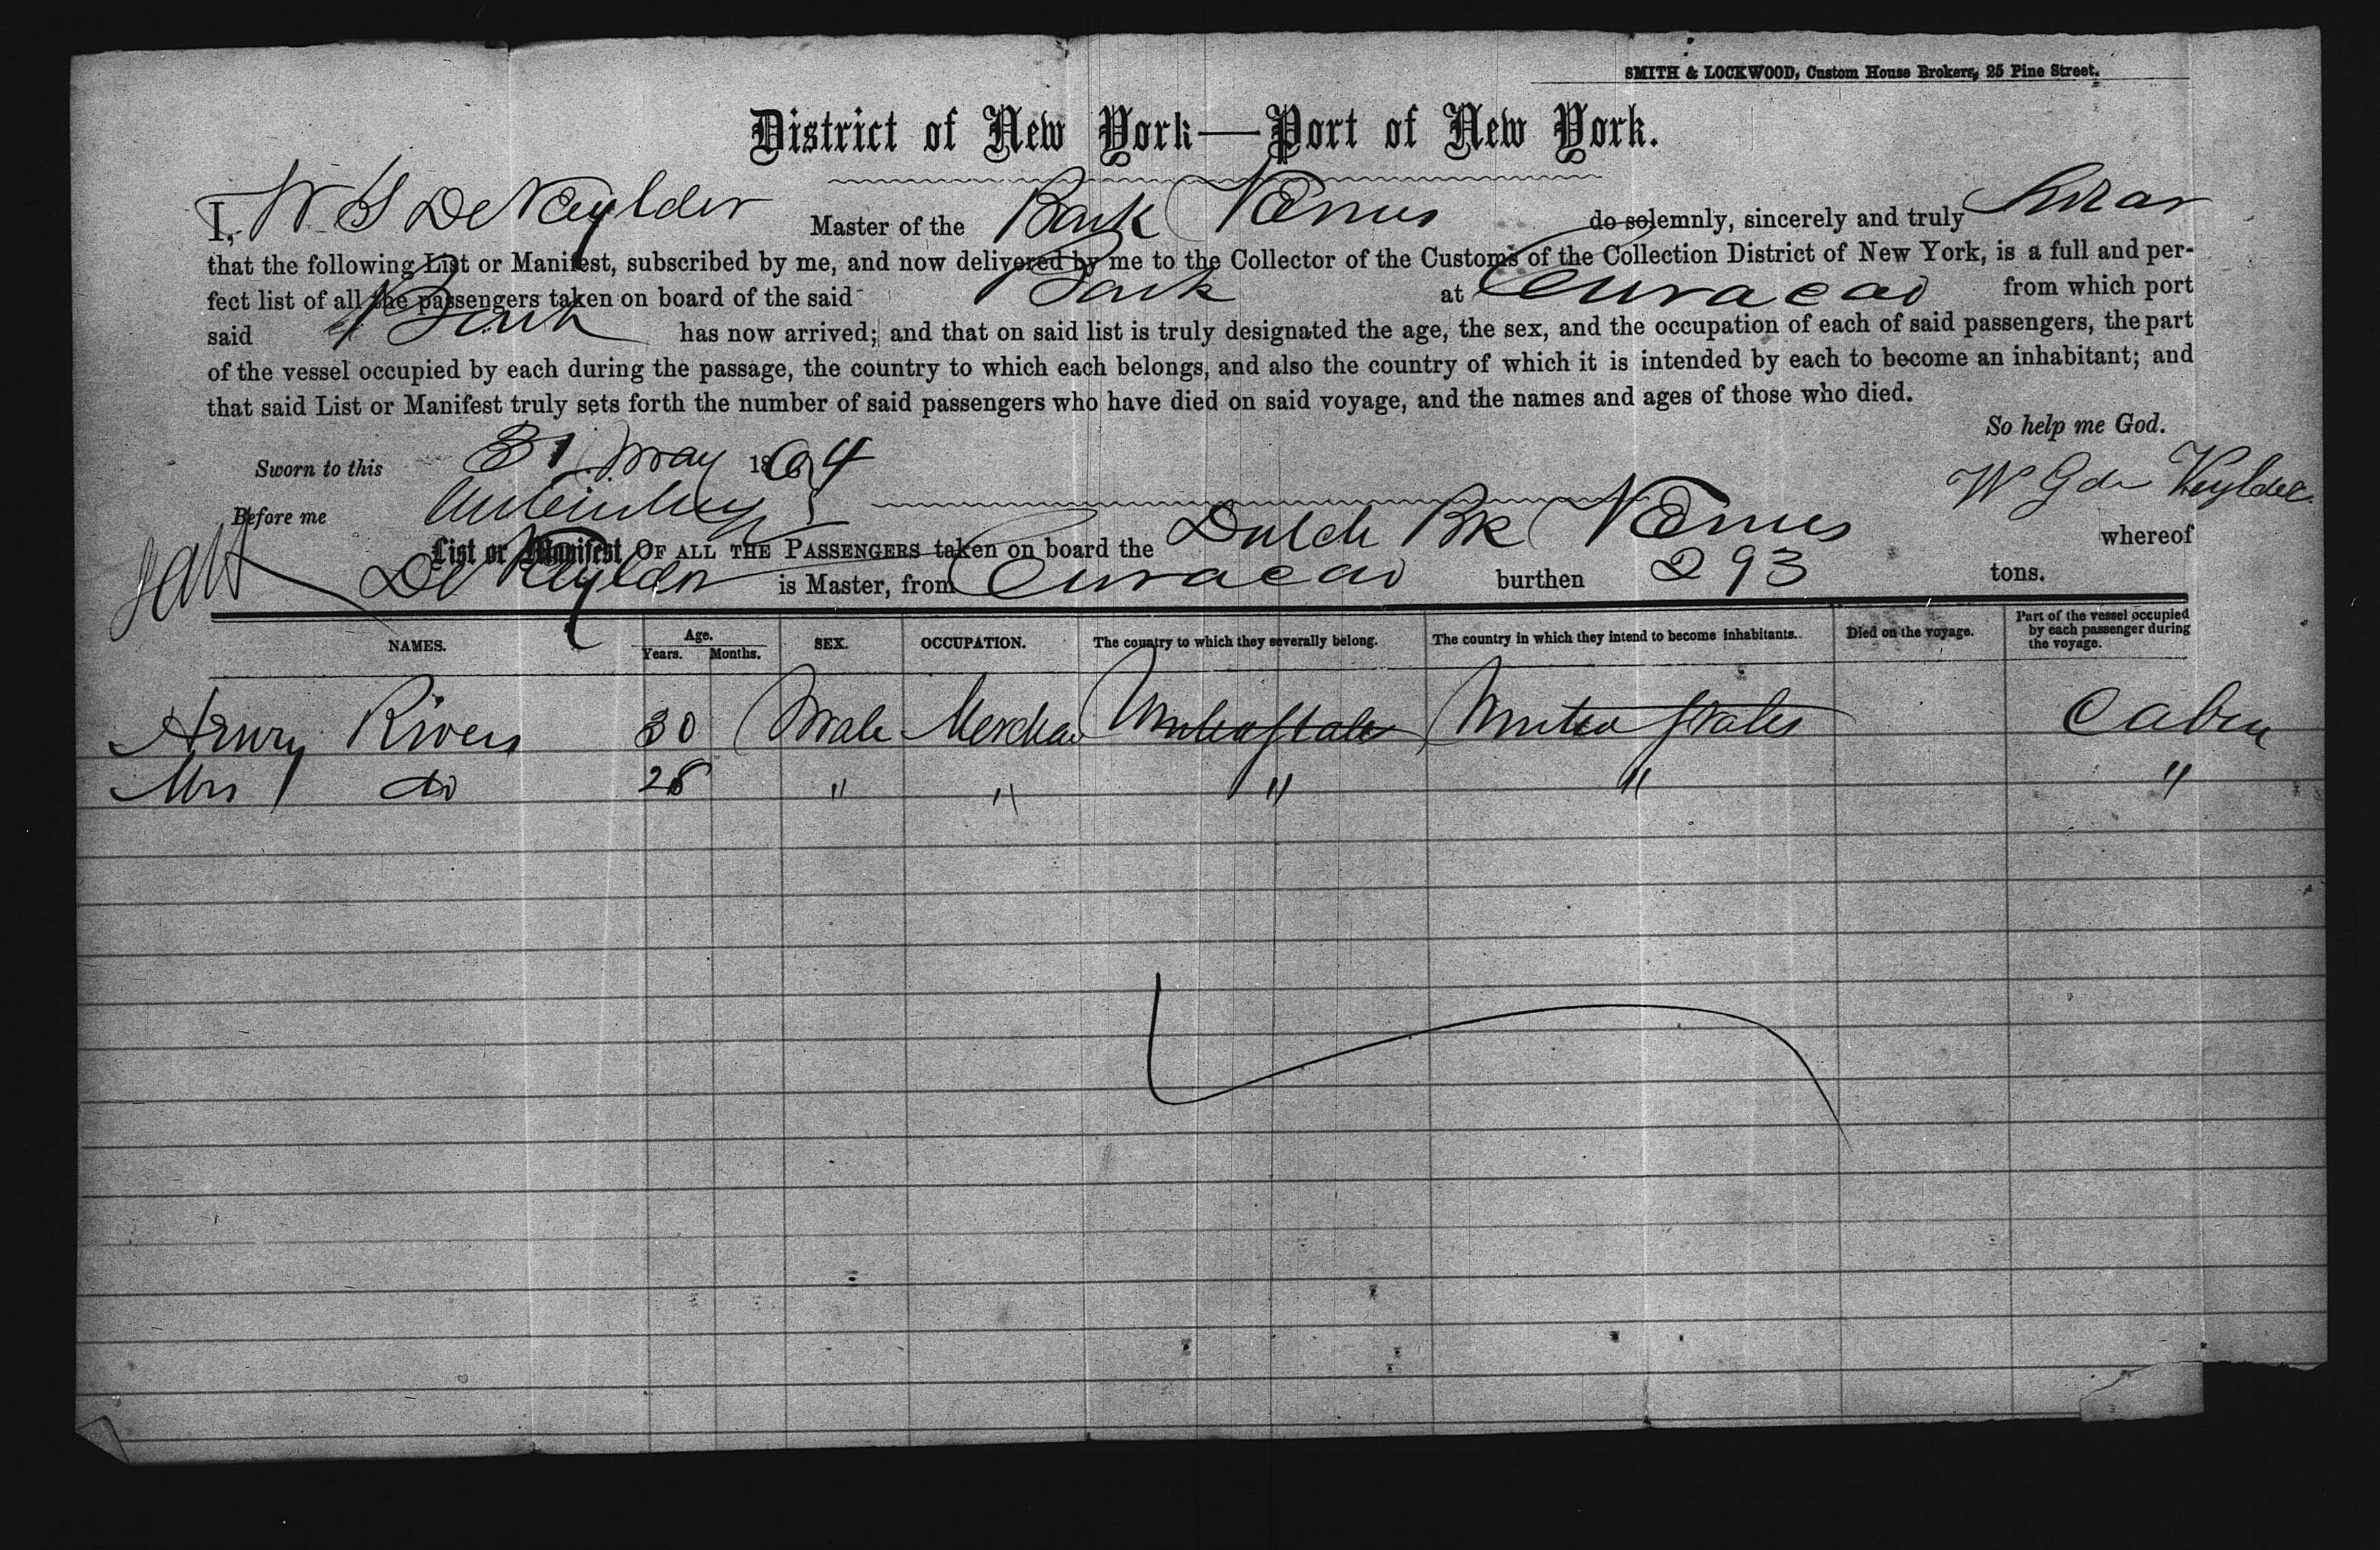 SMITH & LOCKWOOD, Custom House Brokers, 25 Pine Street.
District of New York—Port of New York.
I, W G De Veylder Master of the Bark Venus do solemnly, sincerely and truly Swear
that the following List or Manifest, subscribed by me, and now delivered by me to the Collector of the Customs of the Collection District of New York, is a full and per-
fect list of all the passengers taken on board of the said Bark at Curacao from which port
said Bark has now arrived; and that on said list is truly designated the age, the sex, and the occupation of each of said passengers, the part
of the vessel occupied by each during the passage, the country to which each belongs, and also the country of which it is intended by each to become an inhabitant; and
that said List or Manifest truly sets forth the number of said passengers who have died on said voyage, and the names and ages of those who died.
So help me God.
Sworn to this 31 May 1864
W G de Veylder
Before me
List or Manifest OF ALL THE PASSENGERS taken on board the Dutch Bk Venus whereof
De Veylder is Master, from Curacao burthen 293 tons.
NAMES. Age. Years. Months. SEX. OCCUPATION. The country to which they severally belong. The country in which they intend to become inhabitants. Died on the voyage. Part of the vessel occupied by each passenger during the voyage.
Rivers 30 Male Merchan United States United States Cabin
Mrs do 28 " " " " "